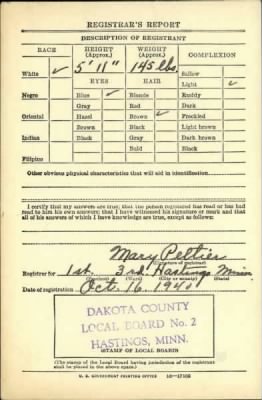 REGISTRAR'S REPORT
DESCRIPTION OF REGISTRANT
RACE HEIGHT (Approx.) WEIGHT (Approx.) COMPLEXION
White ✓ 5' 11" 145 lbs. Sallow
EYES HAIR Light ✓
Negro Blue ✓ Blonde Ruddy
Gray Red Dark
Oriental Hazel Brown ✓ Freckled
Brown Black Light brown
Indian Black Gray Dark brown
Bald Black
Filipino
Other obvious physical characteristics that will aid in identification
I certify that my answers are true; that the person registered has read or has had
read to him his own answers; that I have witnessed his signature or mark and that
all of his answers of which I have knowledge are true, except as follows:
Mary Peltier
(Signature of registrar)
Registrar for 1st. 3rd. Hastings Minn
(Precinct) (Ward) (City or county) (State)
Date of registration Oct. 16, 1940
DAKOTA COUNTY
LOCAL BOARD No. 2
HASTINGS, MINN.
(STAMP OF LOCAL BOARD)
(The stamp of the Local Board having jurisdiction of the registrant
shall be placed in the above space.)
U. S. GOVERNMENT PRINTING OFFICE 16—17105